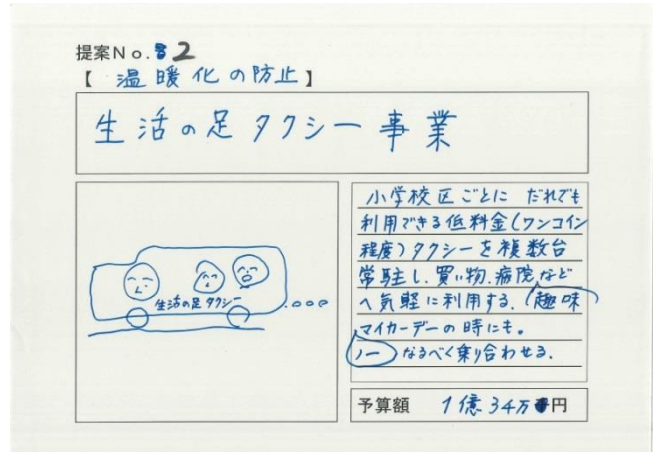 提案No.2
【 温暖化の防止 】
生活の足タクシー事業
生活の足タクシー
小学校区ごとに だれでも
利用できる低料金(ワンコイン
程度)タクシーを複数台
常駐し、買い物、病院など
へ気軽に利用する。(趣味
マイカーデーの時にも。
ノー なるべく乗り合わせる。
予算額 1億34万円